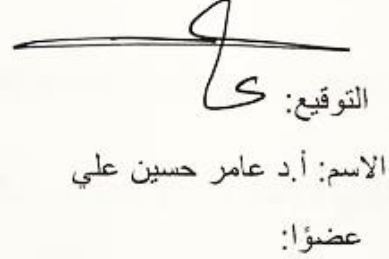 التوقيع:
الاسم: أ.د عامر حسين علي
عضوًا: